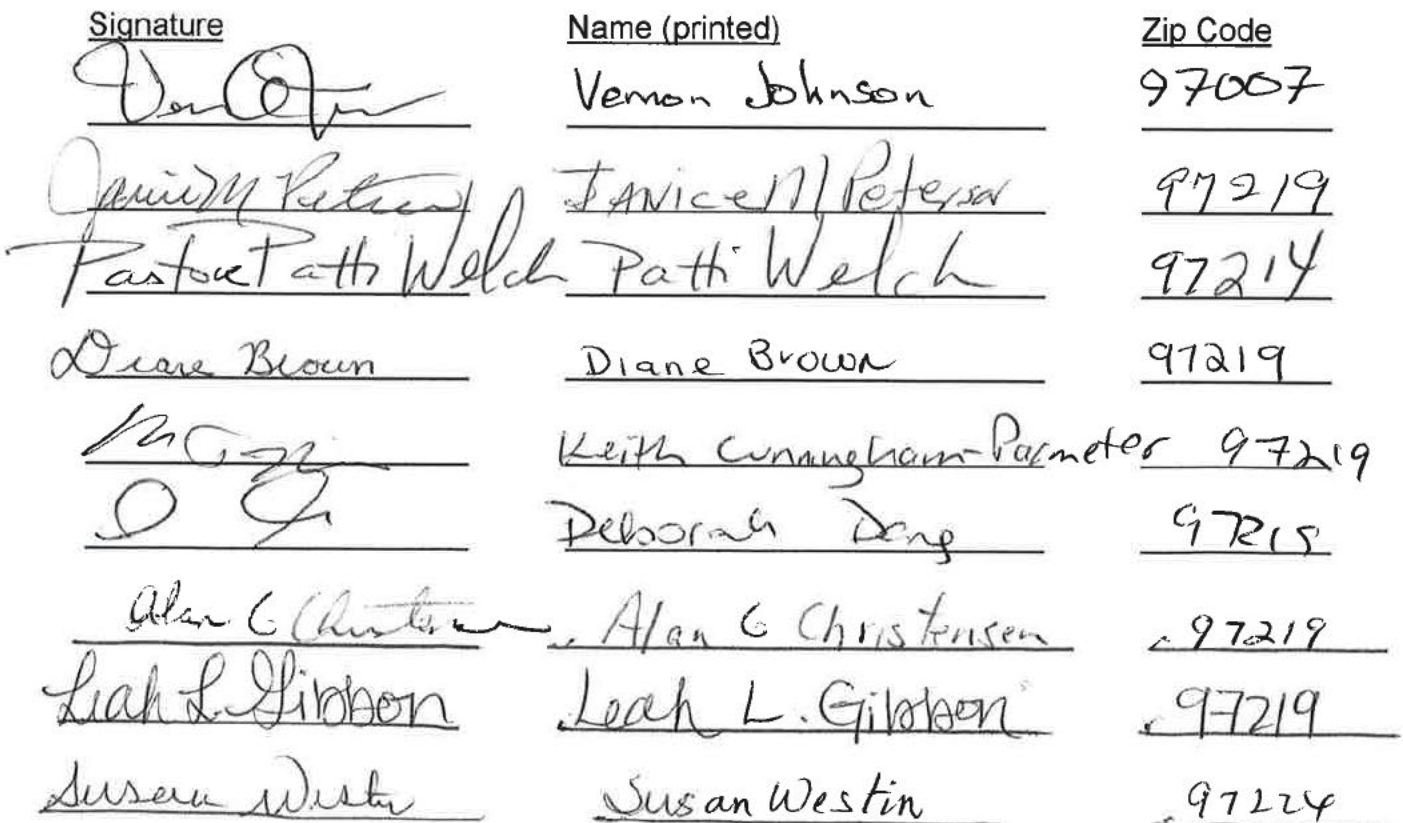 Signature Name (printed) Zip Code
Vernon Johnson 97007
Janice M Peterson Janice M Peterson 97219
Pastor Patti Welch Patti Welch 97214
Diane Brown Diane Brown 97219
Keith Cunningham-Parmeter 97219
Deborah Dang 97219
Alan G Christensen Alan G Christensen 97219
Leah L. Gibbon Leah L. Gibbon 97219
Susan Westin Susan Westin 97224